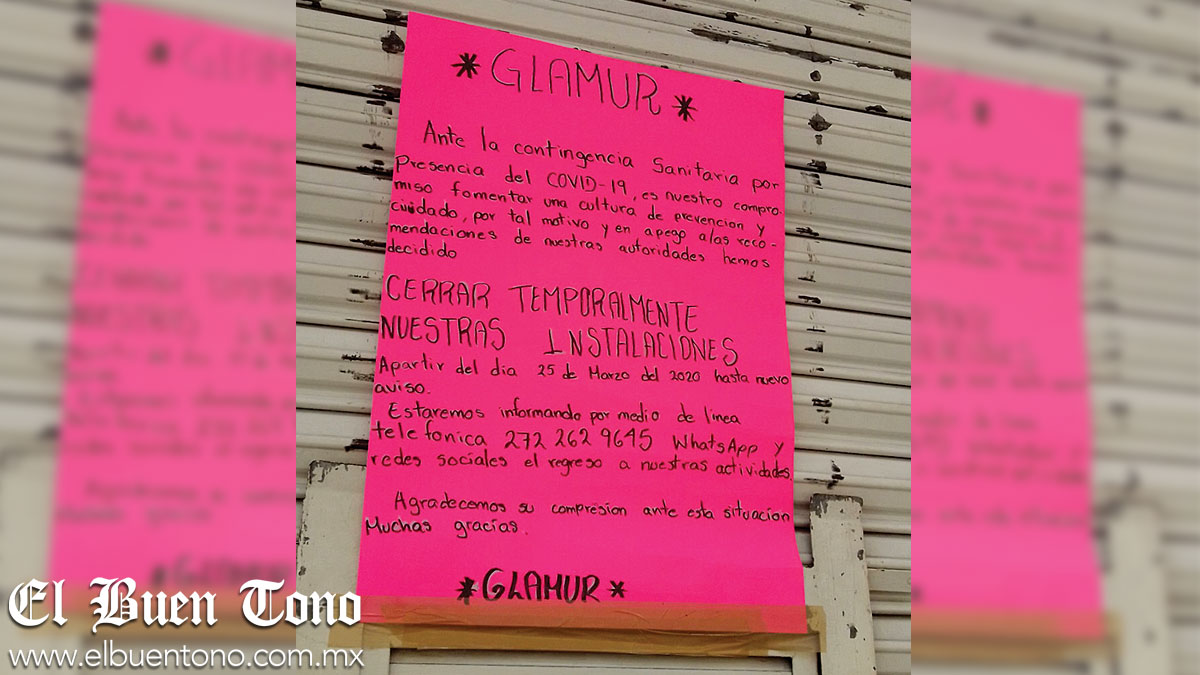 *GLAMUR*
Ante la contingencia Sanitaria por
Presencia del COVID-19, es nuestro compro-
miso fomentar una cultura de prevencion y
cuidado, por tal motivo y en apego a/as reco-
mendaciones de nuestras autoridades hemos
decidido
CERRAR TEMPORALMENTE
NUESTRAS INSTALACIONES
Apartir del dia 25 de Marzo del 2020 hasta nuevo
aviso.
Estaremos informando por medio de linea
telefonica 272 262 9645 WhatsApp y
redes sociales el regreso a nuestras actividades.
Agradecemos su compresion ante esta situacion
Muchas gracias.
*GLAMUR*
El Buen Tono
www.elbuentono.com.mx